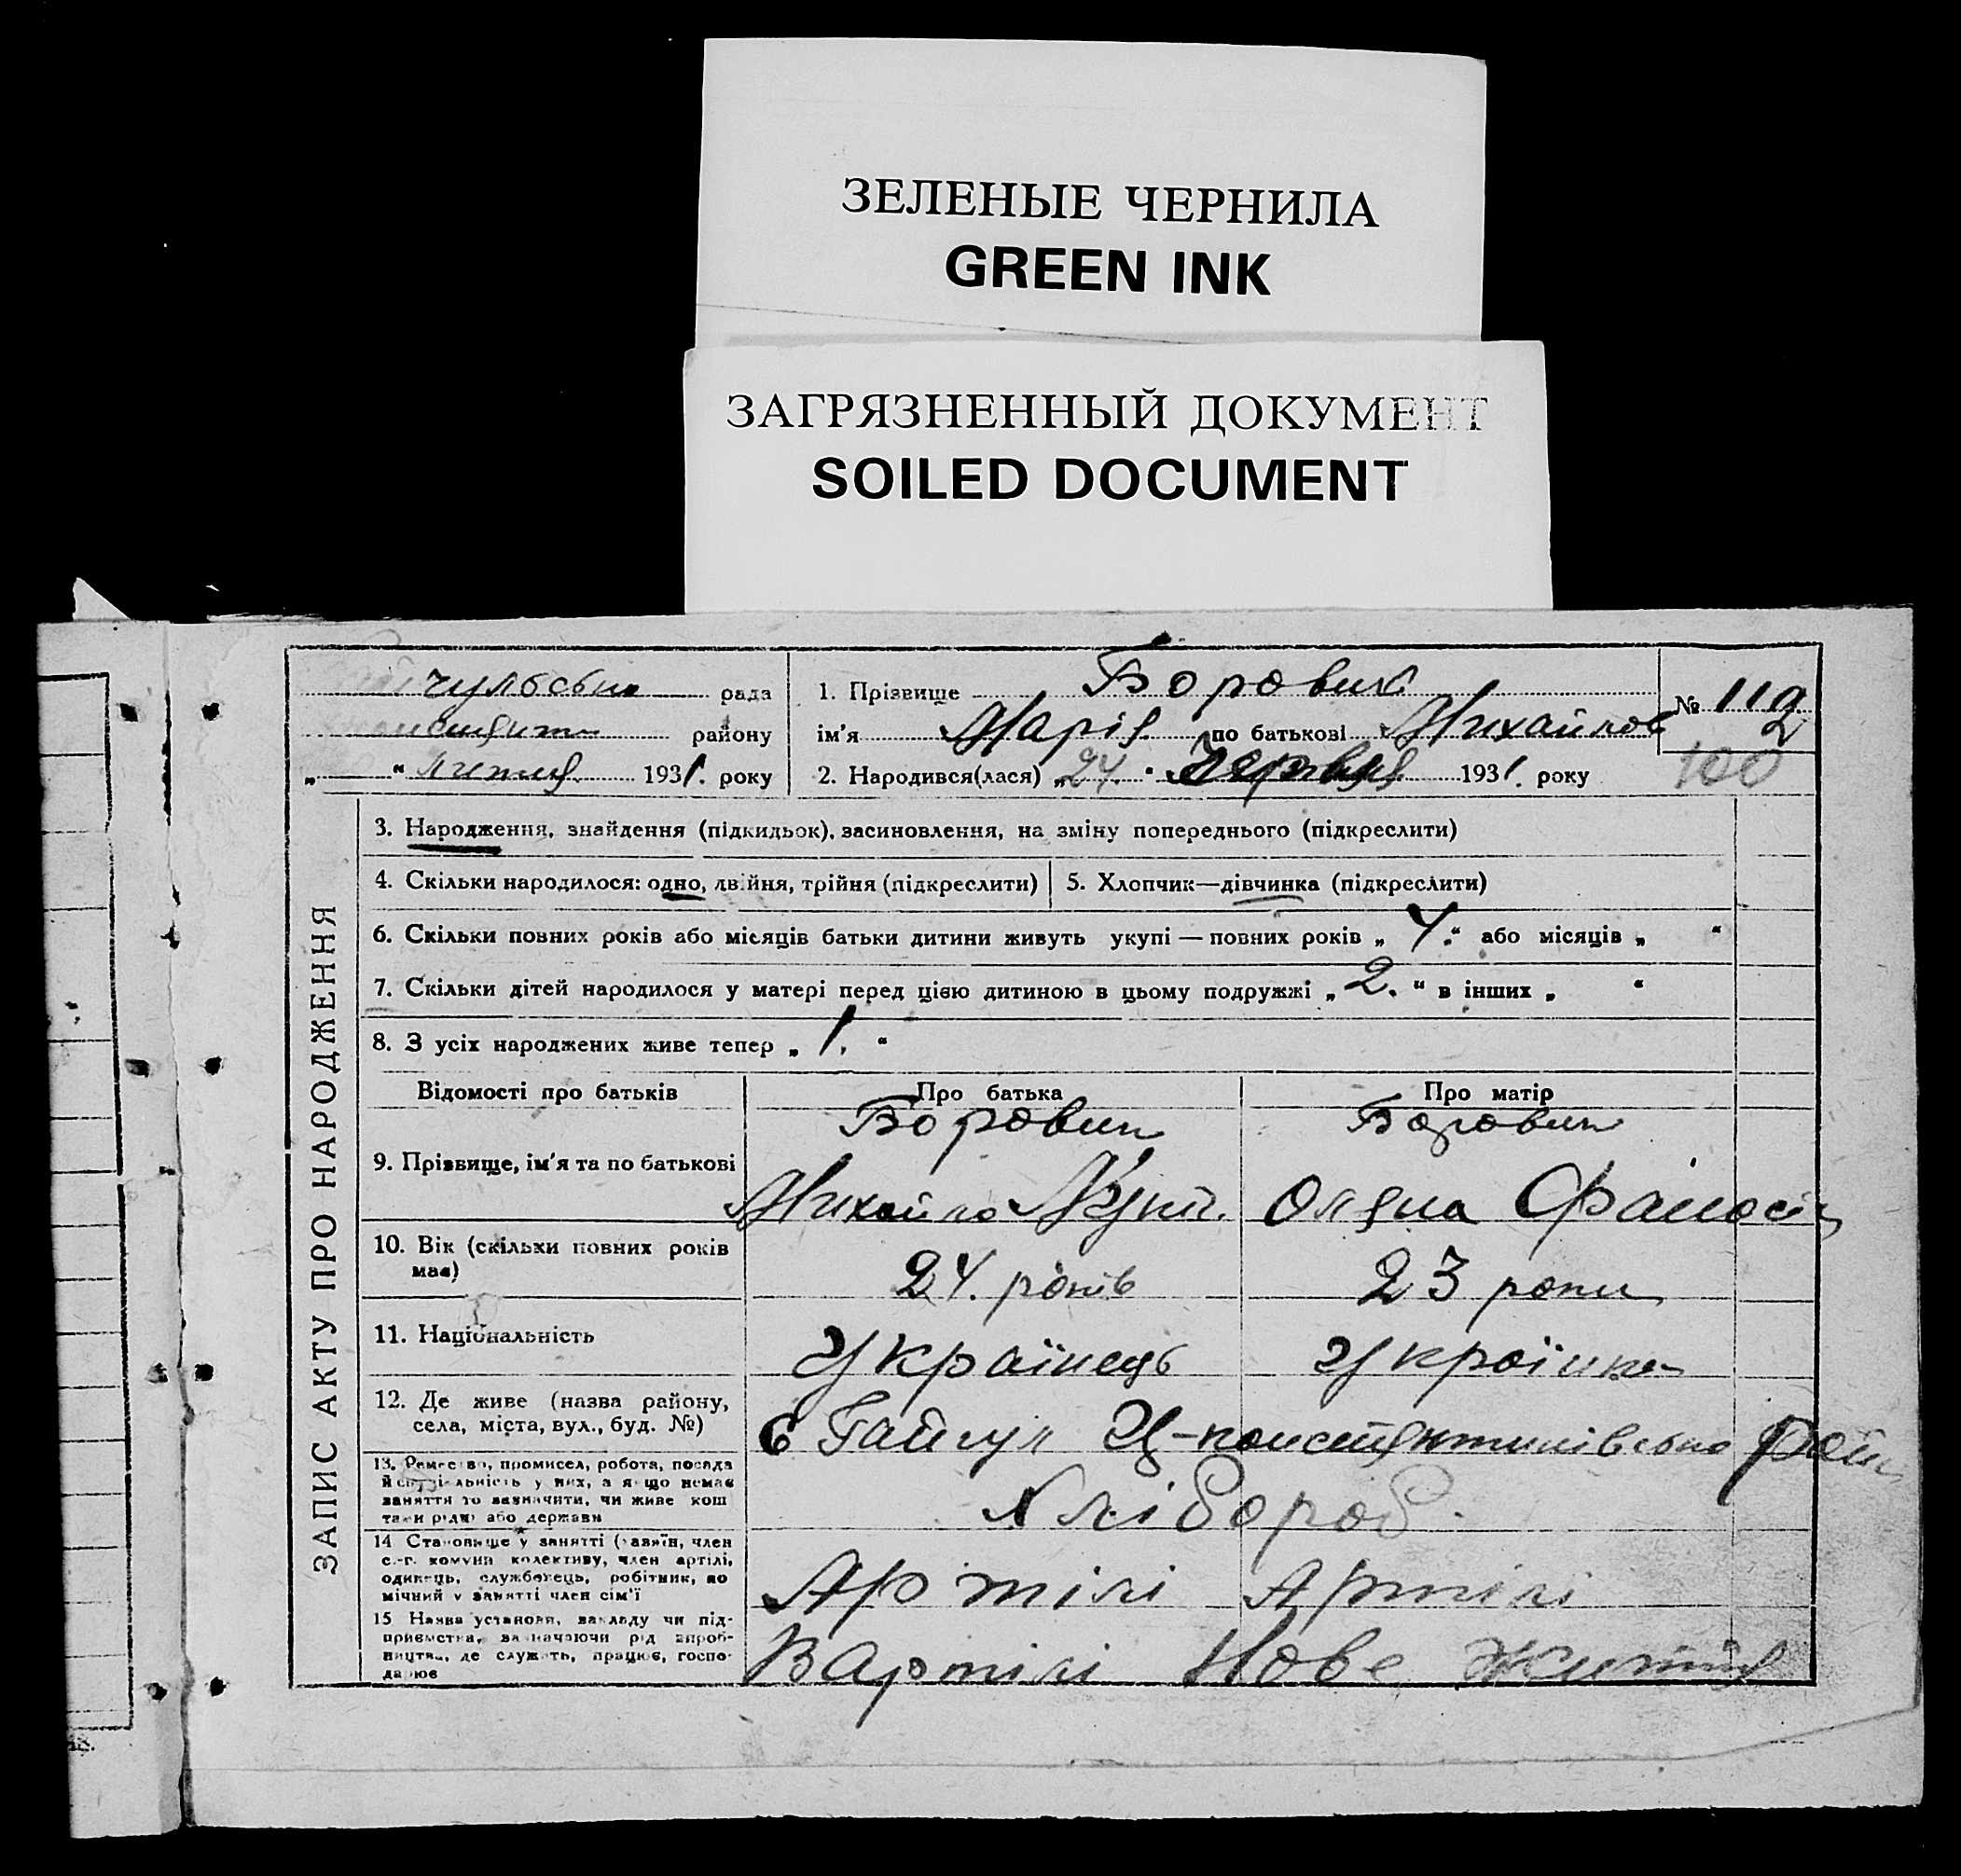 ЗЕЛЕНЫЕ ЧЕРНИЛА
GREEN INK
ЗАГРЯЗНЕННЫЙ ДОКУМЕНТ
SOILED DOCUMENT
чульська рада
району
„ “ Липня 1931. року
1. Прізвище Боровик
ім'я Марія по батькові Михайлов
2. Народився(лася) „24. Червня 1931. року
№ 112
100
ЗАПИС АКТУ ПРО НАРОДЖЕННЯ
3. Народження, знайдення (підкидьок), засиновлення, на зміну попереднього (підкреслити)
4. Скільки народилося: одно, двійня, трійня (підкреслити)
5. Хлопчик—дівчинка (підкреслити)
6. Скільки повних років або місяців батьки дитини живуть укупі — повних років „ 4. “ або місяців „ “
7. Скільки дітей народилося у матері перед цією дитиною в цьому подружжі „ 2. “ в інших „ “
8. З усіх народжених живе тепер „ 1. “
Відомості про батьків
Про батька
Про матір
9. Прізвище, ім'я та по батькові
Боровик
Михайло
Боровик
10. Вік (скільки повних років
має)
24. років
23 роки
11. Національність
Українець
Українка
12. Де живе (назва району,
села, міста, вул., буд. №)
с Гайчул Ц-констянтинівсько
13. Ремество, промисел, робота, посада
й спеціяльність у них, а якщо немає
заняття то зазначити, чи живе кош
тами рідні або держави
Хлібороб.
14 Становище у занятті (хазяїн, член
с.-г. комуни колективу, член артілі,
одинець, службовець, робітник, по
мічний у занятті член сім'ї
Артілі
Артілі
15 Назва установи, закладу чи під-
приємства, зазначаючи рід вироб-
ництва, де служить, працює, госпо-
дарює
В Артілі Нове Життя